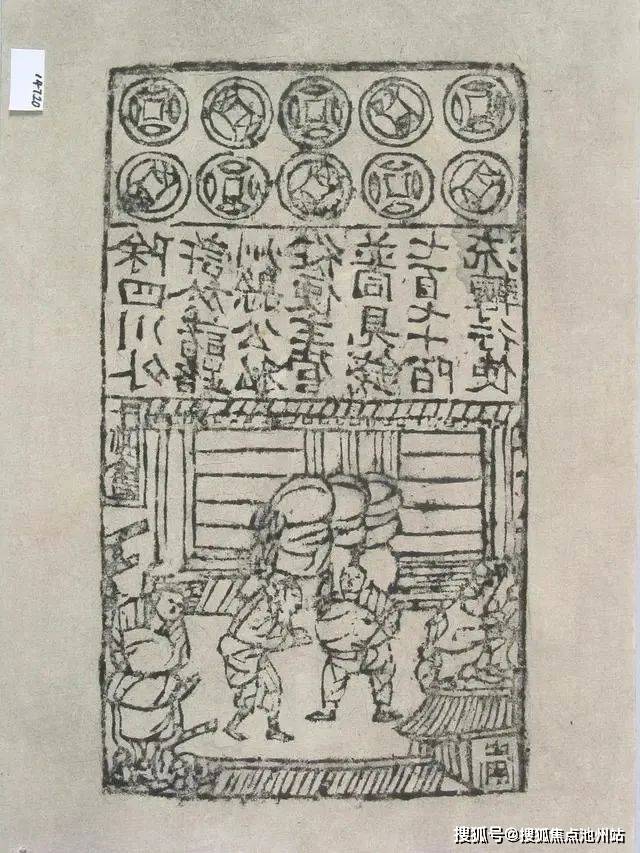 除四川外
許於諸路
州縣公私
從便主管
並同見錢
七百七十陌
流轉行使
搜狐号@搜狐焦点池州站